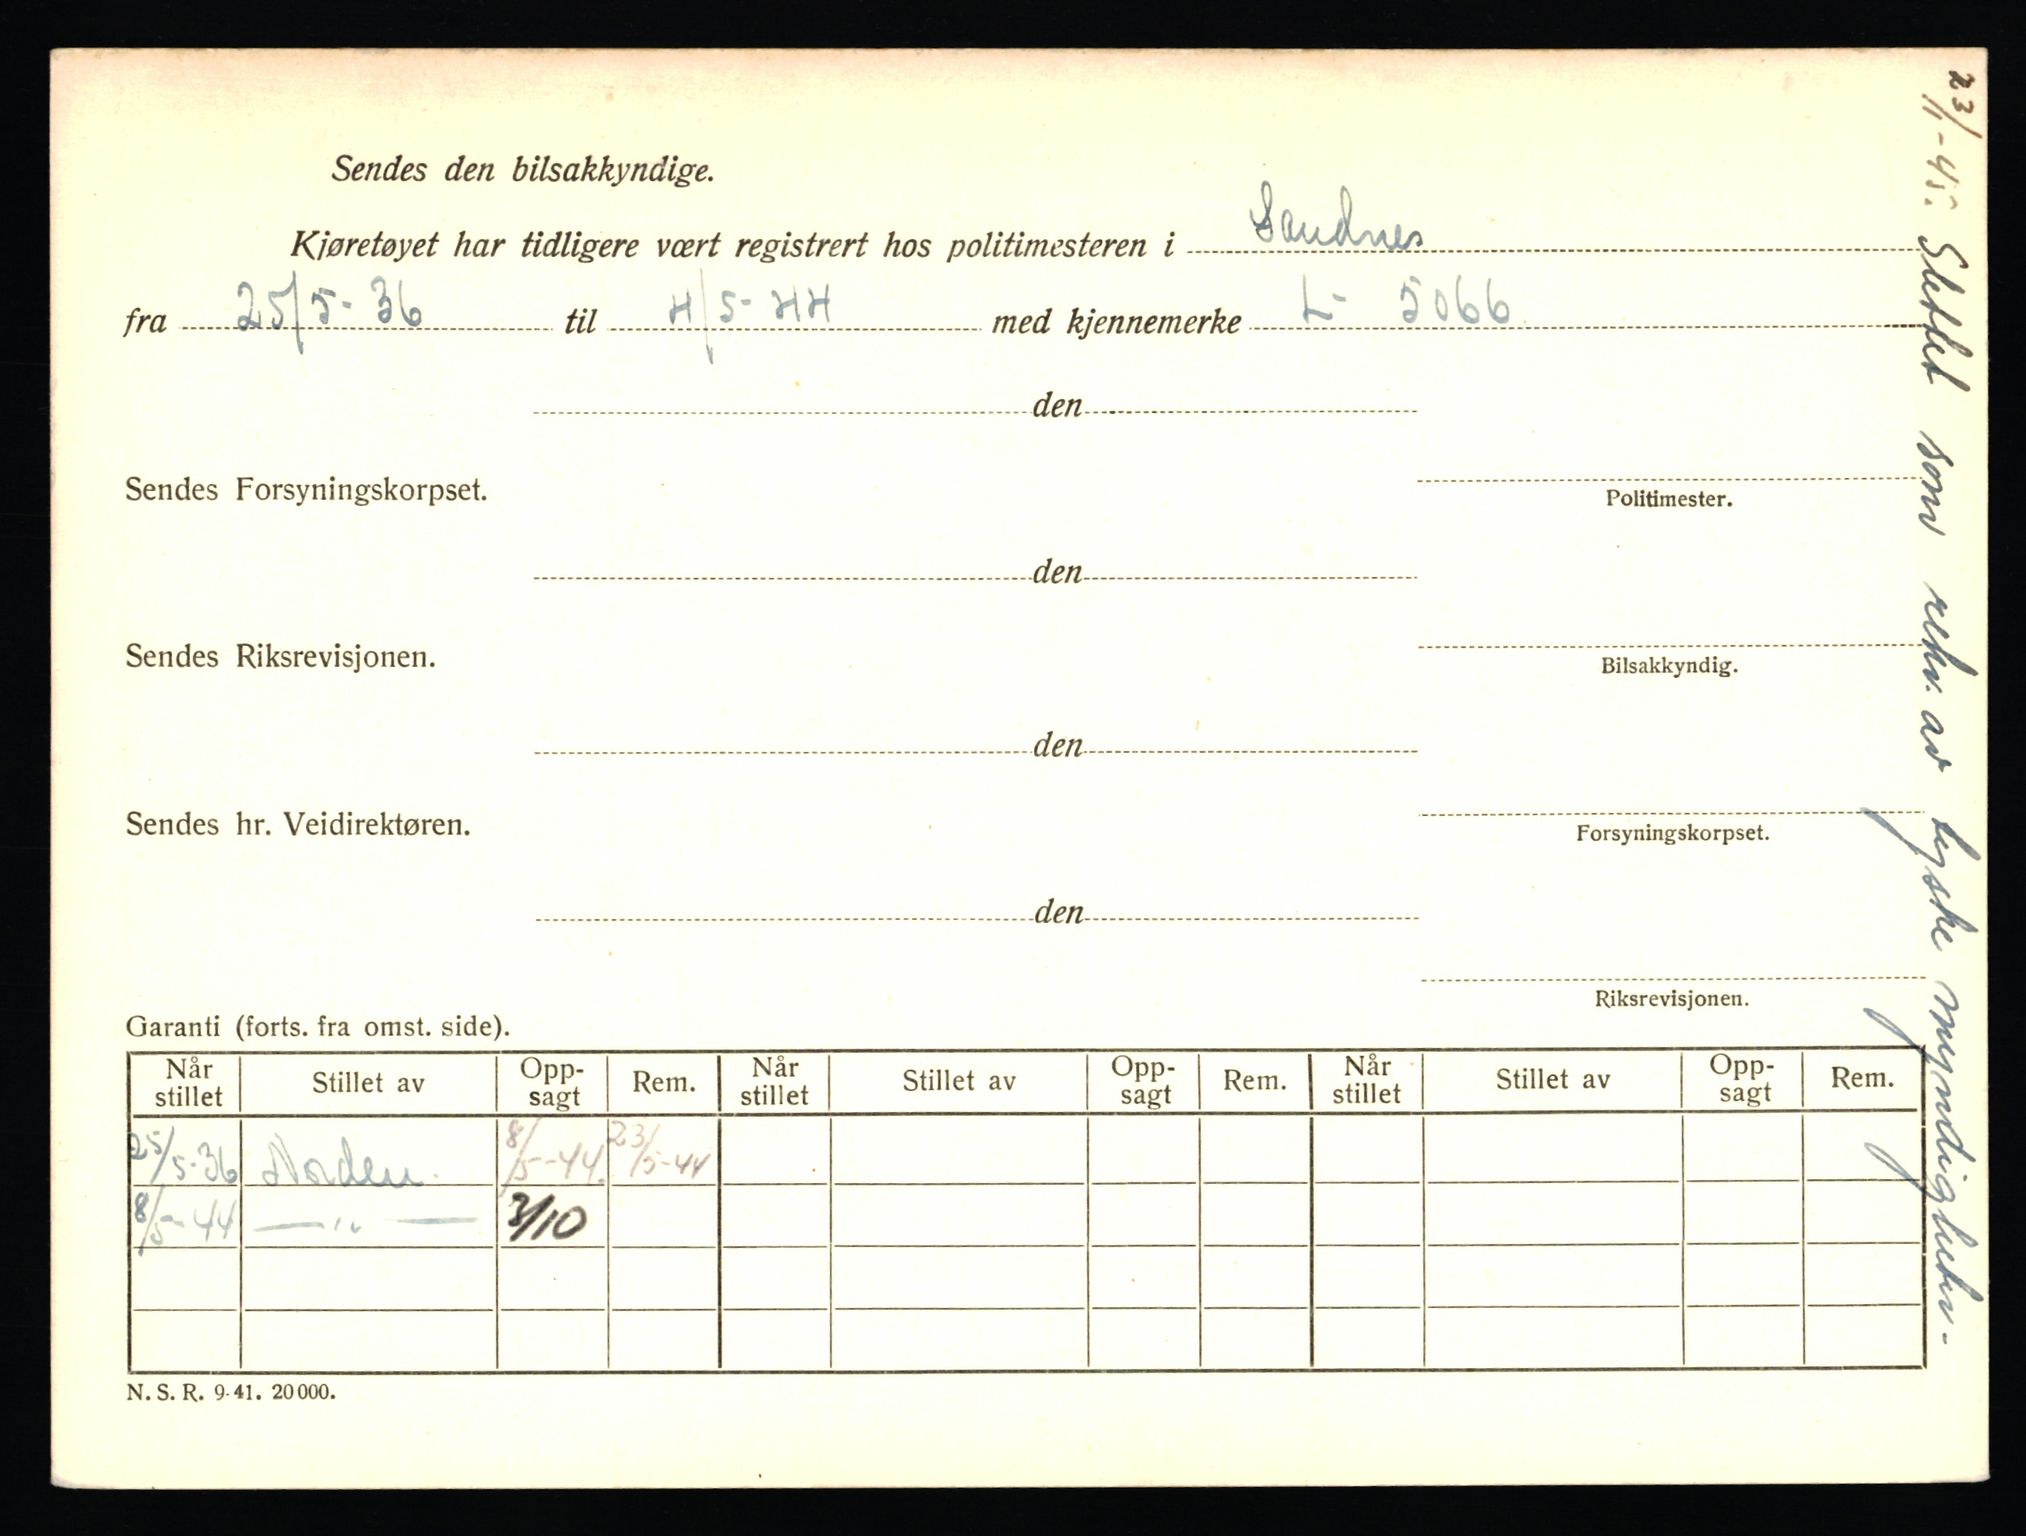 Sendes den bilsakkyndige.
Kjøretøyet har tidligere vært registrert hos politimesteren i Sandnes
fra 25/5-36 til 4/5-44 med kjennemerke L- 5066
den
Sendes Forsyningskorpset.
Politimester.
den
Sendes Riksrevisjonen.
Bilsakkyndig.
den
Sendes hr. Veidirektøren.
Forsyningskorpset.
den
Riksrevisjonen.
Garanti (forts. fra omst. side).
Når stillet Stillet av Opp-sagt Rem. Når stillet Stillet av Opp-sagt Rem. Når stillet Stillet av Opp-sagt Rem.
25/5-36 Norden. 8/5-44. 23/5-44
8/5-44 — " — 3/10
N. S. R. 9-41. 20 000.
23/11-45. Slettet som rekv. av tyske myndigheter.-